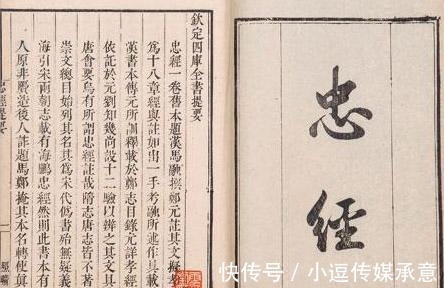 忠經
欽定四庫全書提要
忠經一卷舊本題漢馬融撰鄭元註其文擬孝
爲十八章經與註如出一手考融所述作具載
漢書本傳元所訓釋載於鄭志目錄尤詳孝經
依託於元劉知幾尚設十二驗以辨之其文具
唐會要烏有所謂忠經註哉隋志唐志皆不著
崇文總目始列其名其爲宋代僞書殆無疑義
海引宋兩朝志載有海鵬忠經然則此書本有
人原非贋造後人詐題馬鄭掩其本名轉使眞
忠經提要
一
快传号 / 小逗传媒承意